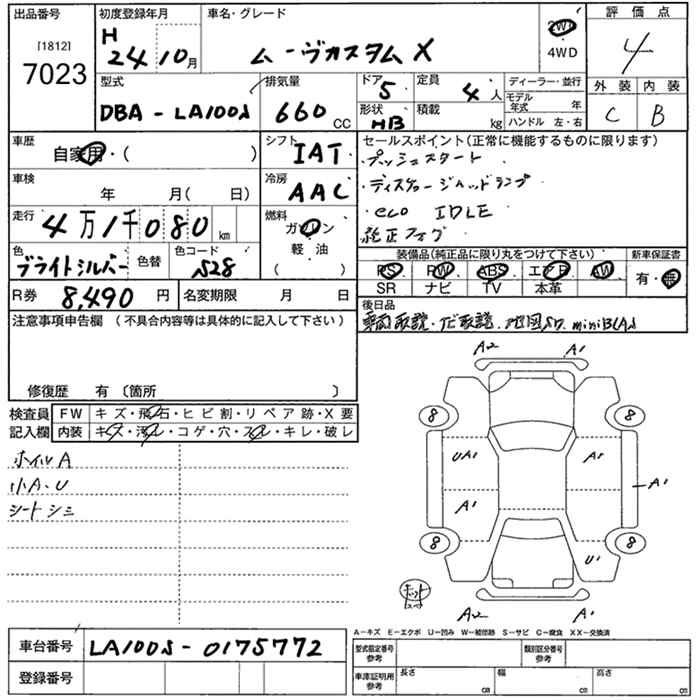 出品番号 初度登録年月 車名・グレード 2WD 評価点
[1812] H 24 10月 ムーヴカスタム X 4WD 4
7023
型式 排気量 ドア 5 定員 4人 ディーラー・並行 外装 内装
DBA - LA100S 660 CC 形状 HB 積載 kg モデル年式 年 C B
ハンドル 左・右
車歴 シフト セールスポイント(正常に機能するものに限ります)
自家用・( ) IAT ・プッシュスタート
車検 冷房 ・ディスチャージヘッドランプ
年 月( 日) AAC ・eco IDLE
走行 4万1千080km 燃料 ガソリン 純正フォグ
色 色替 色コード 軽・油 装備品(純正品に限り丸をつけて下さい) 新車保証書
ブライトシルバー S28 ( ) PS PW ABS エアB AW 有・無
R券 8,490円 名変期限 月 日 SR ナビ TV 本革
注意事項申告欄(不具合内容等は具体的に記入して下さい) 後日品
車両取説・ナビ取説・地図SD miniB-CAS
修復歴 有〔箇所 〕
検査員 FW キズ・飛石・ヒビ割・リペア跡・X要
記入欄 内装 キズ・汚レ・コゲ・穴・スレ・キレ・破レ
ホイルA
小A.U
シートシミ
A2 A1
8 8
UA1 A1
A1 A1
8 8
U1
A2 A1
A−キズ E−エクボ U−凹み W−補修跡 S−サビ C−腐食 XX−交換済
車台番号 LA100S - 0175772 型式指定番号 参考 類別区分番号 参考
登録番号 車庫証明用 参考 長さ cm 幅 cm 高さ cm